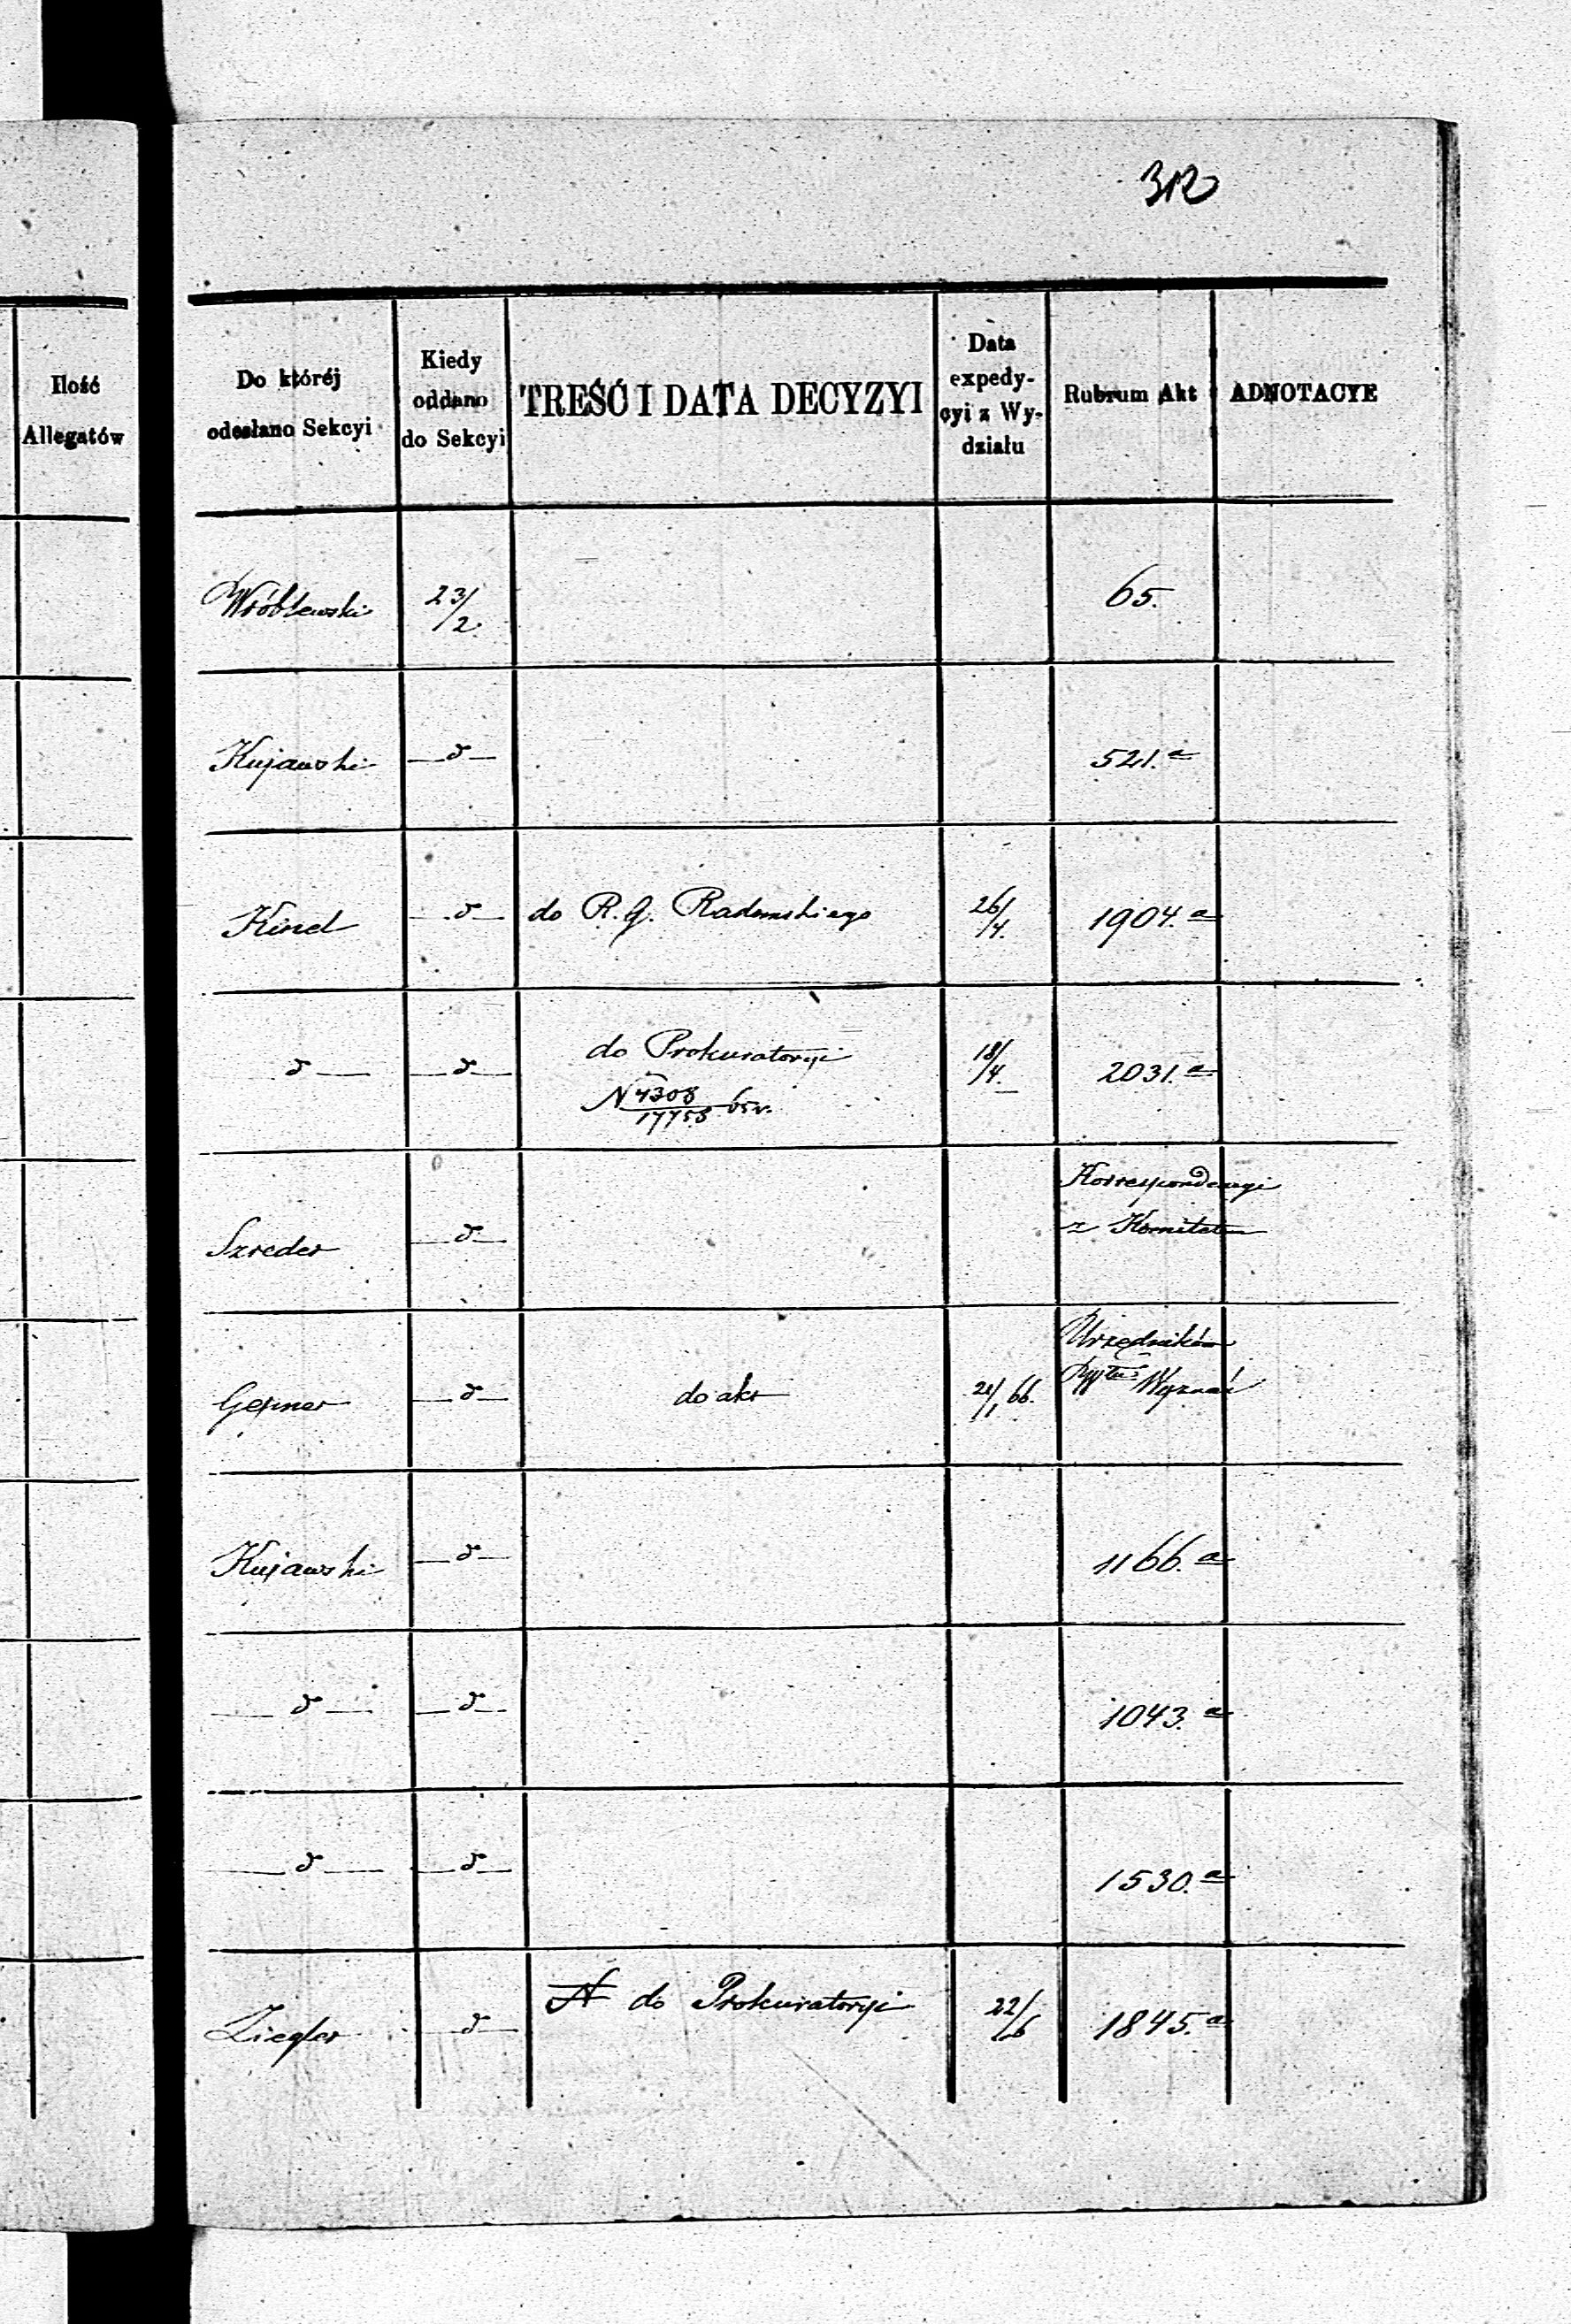 312
Ilość
Allegatów
Do któréj
odesłano Sekcyi
Kiedy
oddano
do Sekcyi
TREŚĆ I DATA DECYZYI
Data
expedy-
cyi z Wy-
działu
Rubrum Akt
ADNOTACYE
Wróblewski 23/2. 65.
Kujawski —d— 521.a
Kind —d— do R. G. Radomskiego 26/4. 1904.a
—d— —d— do Prokuratoryi 18/4. 2031.a
N 4308/17758 65r.
Szreder —d— Korrespondencyi
z Komitetem
Urzędników
Gejsner —d— do akt 21/1 66. Wyznań
Kujawski —d— 1166.a
—d— —d— 1043.a
—d— —d— 1530.a
Ziegler —d— do Prokuratoryi 22/6 1845.a